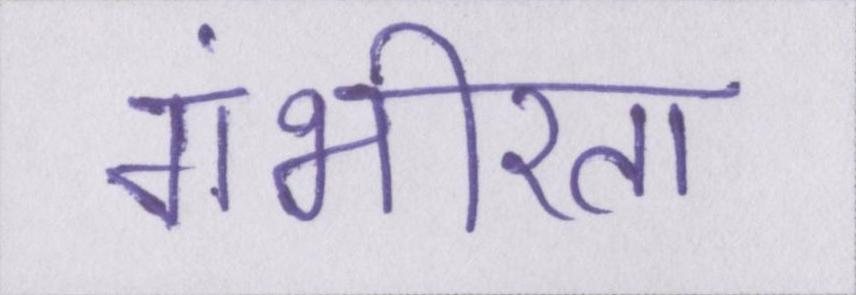 गंभीरता